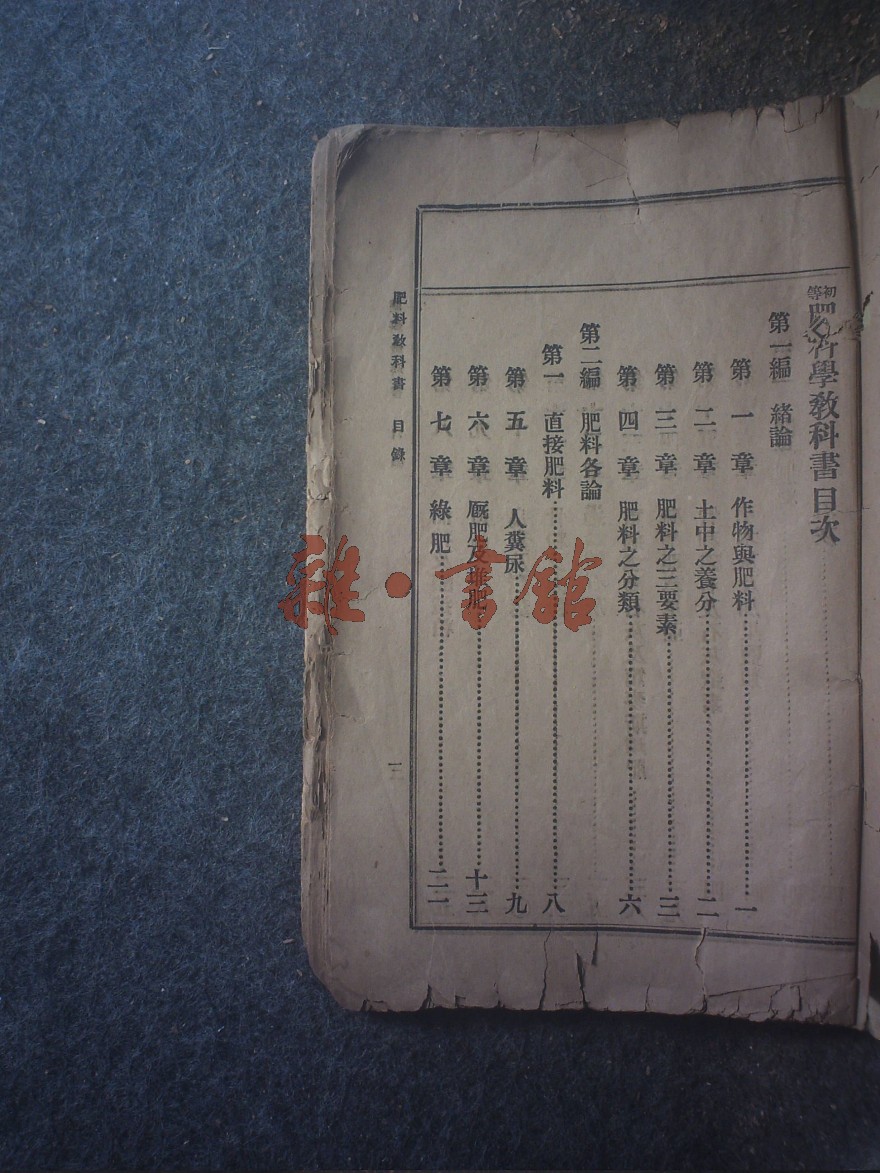 初等肥料學教科書目次
第一編 緒論
第一章 作物與肥料……一
第二章 土中之養分……二
第三章 肥料之三要素……三
第四章 肥料之分類……六
第二編 肥料各論
第一 直接肥料……八
第五章 人糞尿……九
第六章 厩肥及堆肥……十三
第七章 綠肥……二一
肥料教科書 目錄
一
雜·書館